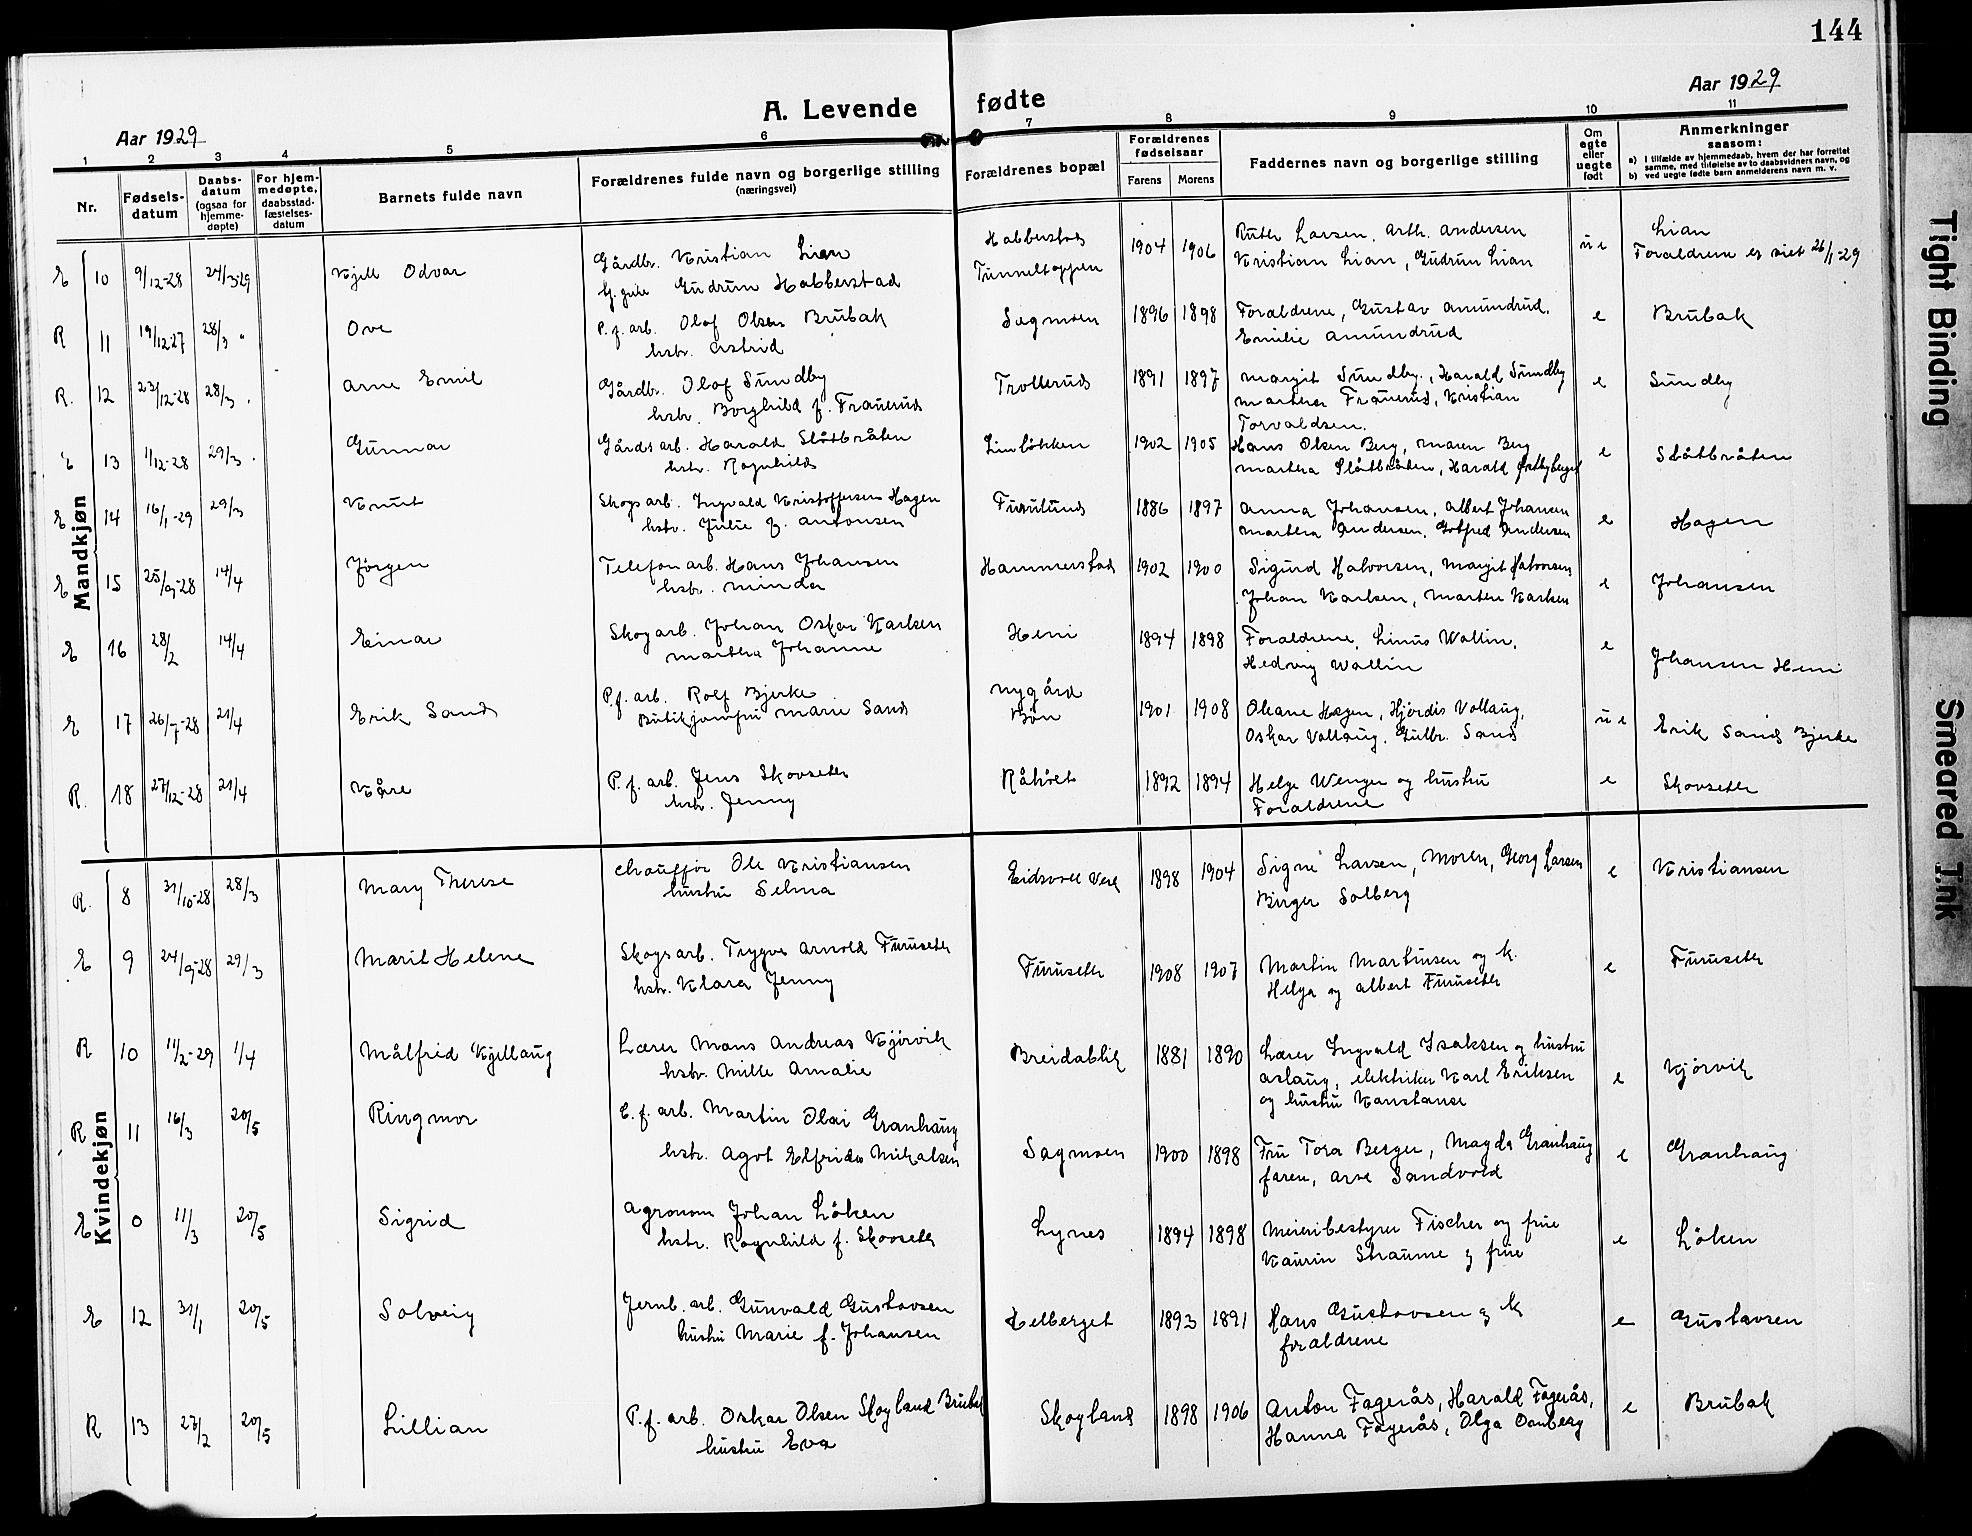 144
A. Levende fødte
Aar 1929
Aar 1929
1 2 3 4 5 6 7 8 9 10 11
Nr.
Fødsels-
datum
Daabs-
datum
(ogsaa for
hjemme-
døpte)
For hjem-
medøpte,
daabsstad-
fæstelses-
datum
Barnets fulde navn
Forældrenes fulde navn og borgerlige stilling
(næringsvei)
Forældrenes bopæl
Forældrenes
fødselsaar
Farens Morens
Faddernes navn og borgerlige stilling
Om
egte
eller
uegte
født
Anmerkninger
saasom:
a) I tilfælde av hjemmedaab, hvem der har forrettet
samme, med tilføielse av to daabsvidners navn, og
b) ved uegte fødte barn anmelderens navn m. v.
Mandkjøn
E 10 9/12-28 24/3-29 Kjell Odvar Gårdbr. Kristian Lian Habberstad 1904 1906 Ruth Larsen, Arth. Andersen ue Lian
G. pike Gudrun Habberstad Tunneltoppen Kristian Lian, Gudrun Lian Foraldrene er viet 26/1-29
R 11 19/12 27 28/3 " Ove P. f. arb. Olof Olsen Brubak Sagmoen 1896 1898 Foraldrene, Gustav Amundrud, e Brubak
hstr. Astrid Emilie Amundrud
R. 12 23/12-28 28/3 . Arne Emil Gårdbr. Olof Sundby Trollerud 1891 1897 Margit Sundby, Harald Sundby e Sundby
hstr. Borghild f. Frauerud Martha Frauerud, Kristian
Torvaldsen.
E 13 1/12-28 29/3 . Gunnar Gårdsarb. Harald Slåtbråten Linløkken 1902 1905 Hans Olsen Berg, Maren Berg e Slåtbråten
hstr. Ragnhild Martha Slåtbråten, Harald
E 14 16/1-29 29/3 Knut Skogsarb. Ingvald Kristoffersen Hagen Furulund 1886 1897 Anna Johansen, Albert Johansen e Hagen
hstr. Julie f. Antonsen Martha Andersen, Gotfred Andersen
E 15 25/9-28 14/4 Jørgen Telefonarb. Hans Johansen Hammerstad 1902 1900 Sigurd Halvorsen, Margit Halvorsen e Johansen
hstr. Minda Johan Karlsen, Marthe Karlsen
E 16 28/2 14/4 Einar Skogarb. Johan Oskar Karlsen Heni 1894 1898 Foraldrene, Linus Wallin, e Johansen Heni
Martha Johanne Hedvig Wallin
E 17 26/7-28 21/4 Erik Sand P.f. arb. Rolf Bjerke Nygård 1901 1908 Oleane Hagen, Hjørdis Vollaug, ue Erik Sand Bjerke
Butikjomfru Marie Sand Bøn Oskar Vollaug, Gulbr. Sand
R. 18 27/12-28 21/4 Kåre P. f. arb. Jens Skovseth Råholt 1892 1894 Helge Wenger og hustru e Skovseth
hstr. Jenny Foraldrene
Kvindekjøn
R. 8 31/10-28 28/3 Mary Therese Chauffør Ole Kristiansen Eidsvoll Verk 1898 1904 Signe Larsen, Moren, Georg Larsen e Kristiansen
hustru Selma Birger Solberg
E 9 24/9-28 29/3 Marit Helene Skogsarb. Trygve Arnold Furuseth Furuseth 1908 1907 Martin Martinsen og k. e Furuseth
hstr. Klara Jenny Helga og Albert Furuseth
R 10 11/2-29 1/4 Målfrid Kjellaug Lærer Mons Andreas Kjörvik Breidablik 1881 1890 Lærer Ingvald Isaksen og hustru e Kjörvik
hstr. Mille Amalie Aslaug, elektriker Karl Eriksen
og hustru Konstanse
R 11 16/3 20/5 Ringmor C. f. arb. Martin Olai Granhaug Sagmoen 1900 1898 Fru Tora Berger, Magda Granhaug e Granhaug
hstr. Agot Elfrida Mikalsen faren, Arne Sandvold
E 0 11/3 20/5 Sigrid Agronom Johan Løken Lynes 1894 1898 Meieribestyrer Fischer og frue e Løken
hstr. Ragnhild f. Skovseth Kaurin Straume og frue
E 12 31/1 20/5 Solveig Jernb. arb. Gunvald Gustavsen Helberget 1893 1891 Hans Gustavsen og k e Gustavsen
hustru Marie f. Johansen foraldrene
R 13 27/2 20/5 Lillian P. f. arb. Oskar Olsen Skogland Brubak Skogland 1898 1906 Anton Fagerås, Harald Fagerås, e Brubak
hustru Eva Hanna Fagerås, Olga
Tight Binding
Smeared Ink